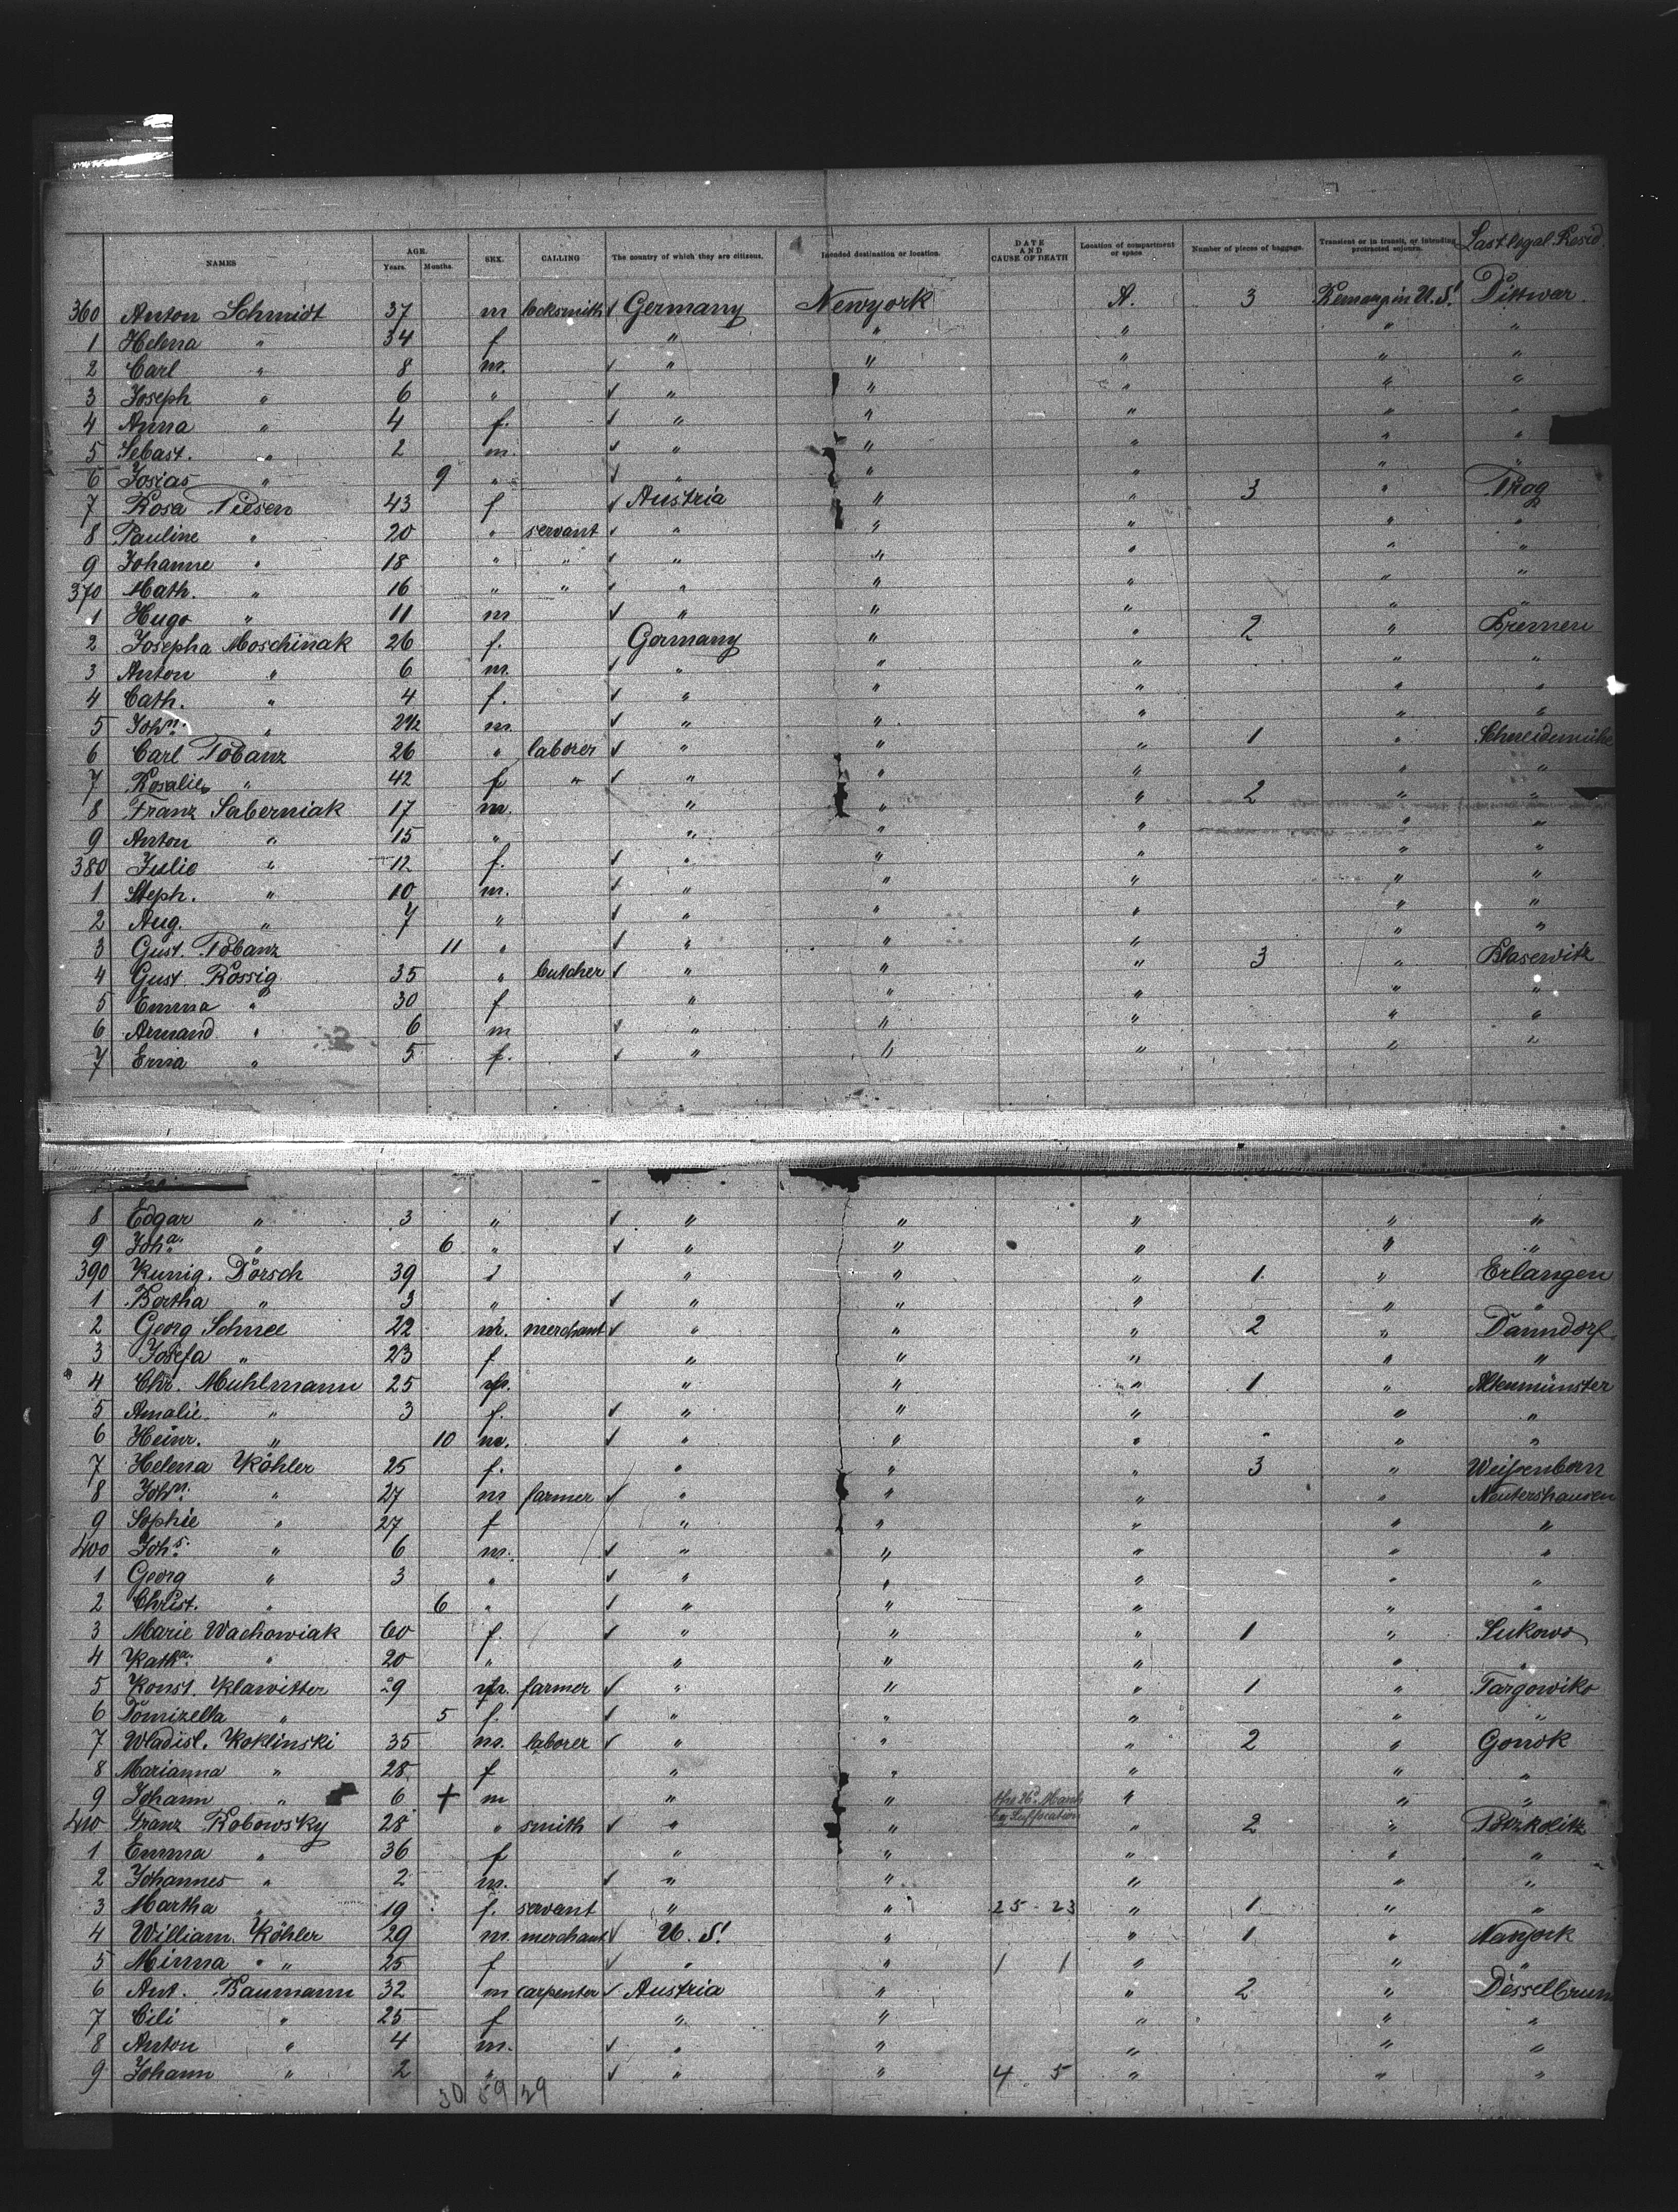 NAMES AGE. Years. Months. SEX. CALLING The country of which they are citizens. Intended destination or location. DATE AND CAUSE OF DEATH Location of compartment or space Number of pieces of baggage. Transient or in transit, or intending protracted sojourn. Last legal Resid.
360 Anton Schmidt 37 m locksmith ✓ Germany Newyork A. 3 Remaug in U. S! Dittwar
1 Helena " 34 f " " " " "
2 Carl " 8 m. ✓ " " " " "
3 Joseph " 6 " ✓ " " " " "
4 Anna " 4 f. ✓ " " " " "
5 Sebast. " 2 m. ✓ " " " " "
6 Josias " 9 " ✓ " " " " "
7 Rosa Piesen 43 f ✓ Austria " " 3 " Prag
8 Pauline " 20 " servant ✓ " " " " "
9 Johanne " 18 " " ✓ " " " " "
370 Math. " 16 " " ✓ " " " " "
1 Hugo " 11 m ✓ " " " " "
2 Josepha Moschinak 26 f. Germany " " 2 " Bremen
3 Anton " 6 m. ✓ " " " " "
4 Cath. " 4 f. ✓ " " " " "
5 John. " 2 1/2 m. ✓ " " " " "
6 Carl Pobanz 26 " laborer ✓ " " " 1 " Schneidemühl
7 Rosalie " 42 f " ✓ " " " " "
8 Franz Saberniak 17 m. " " " 2 " "
9 Anton " 15 " " " " " "
380 Julie " 12 f. ✓ " " " " "
1 Steph. " 10 m. ✓ " " " " "
2 Aug. " 7 " ✓ " " " " "
3 Gust. Pobanz 11 " ✓ " " " " "
4 Gust. Rossig 35 " butcher ✓ " " " 3 " Blasewitz
5 Emma " 30 f " " " " "
6 Armand " 6 m ✓ " " " " "
7 Erna " 5 f. ✓ " " " " "
8 Edgar " 3 " ✓ " " " " "
9 Joha. " 6 " ✓ " " " " "
390 Kunig. Dörsch 39 " " " 1 " Erlangen
1 Bertha " 3 " ✓ " " " " "
2 Georg Schnee 22 m. merchant ✓ " " " 2 " Danndorf
3 Josefa " 23 f " " " " "
4 Chr. Muhlmann 25 " " " 1 " Altenmünster
5 Amalie " 3 f. ✓ " " " " "
6 Heinr. " 10 m. ✓ " " " " " "
7 Helena Köhler 25 f. " " " 3 " Weißenborn
8 John. " 27 m farmer ✓ " " " " Neutershausen
9 Sophie " 27 f " " " " "
400 Johs. " 6 m. ✓ " " " " "
1 Georg " 3 " ✓ " " " " "
2 Christ. " 6 " ✓ " " " " "
3 Marie Wachowiak 60 f. ✓ " " " 1 " Lukowo
4 Katha. " 20 " " " " " "
5 Konst. Klawitter 29 farmer ✓ " " " 1 " Targowiko
6 Domizella " 5 f. ✓ " " " " "
7 Wladisl. Koklinski 35 m. laborer ✓ " " " 2 " Gonsk
8 Marianna " 28 f " " " " "
9 Johann " 6 + m " " the 26d. March by Suffocation " " "
410 Franz Robowsky 28 " smith ✓ " " " 2 "
1 Emma " 36 f " " " " "
2 Johannes " 2 m. ✓ " " " " "
3 Martha " 19 f. servant " " 25 23 " 1 " "
4 William Köhler 29 m. merchant ✓ U. S! " " 1 " Newyork
5 Minna " 25 f ✓ " " 1 1 " " "
6 Ant. Baumann 32 m carpenter ✓ Austria " " 2 " Desselbrunn
7 Cili " 25 f " " " " "
8 Anton " 4 m. ✓ " " " " "
9 Johann " 2 " ✓ " " 4 5 " " "
30 59 29